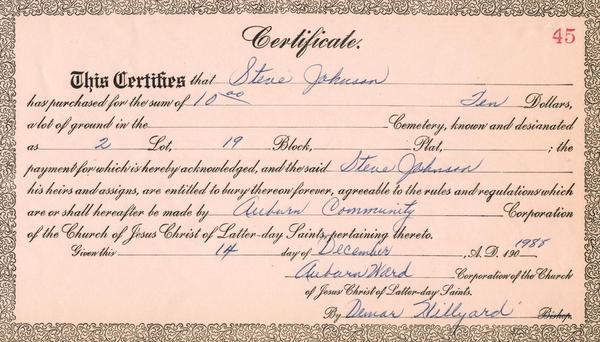 Certificate.
45
This Certifies that Steve Johnson
has purchased for the sum of 10 00 Ten Dollars,
a lot of ground in the Cemetery, known and designated
as 2 Lot, 19 Block, Plat, ; the
payment for which is hereby acknowledged, and the said Steve Johnson
his heirs and assigns, are entitled to bury thereon forever, agreeable to the rules and regulations which
are or shall hereafter be made by Auburn Community Corporation
of the Church of Jesus Christ of Latter-day Saints, pertaining thereto.
Given this 14 day of December, A.D. 190 1985
Auburn Ward Corporation of the Church
of Jesus Christ of Latter-day Saints.
By Demar Hillyard Bishop.